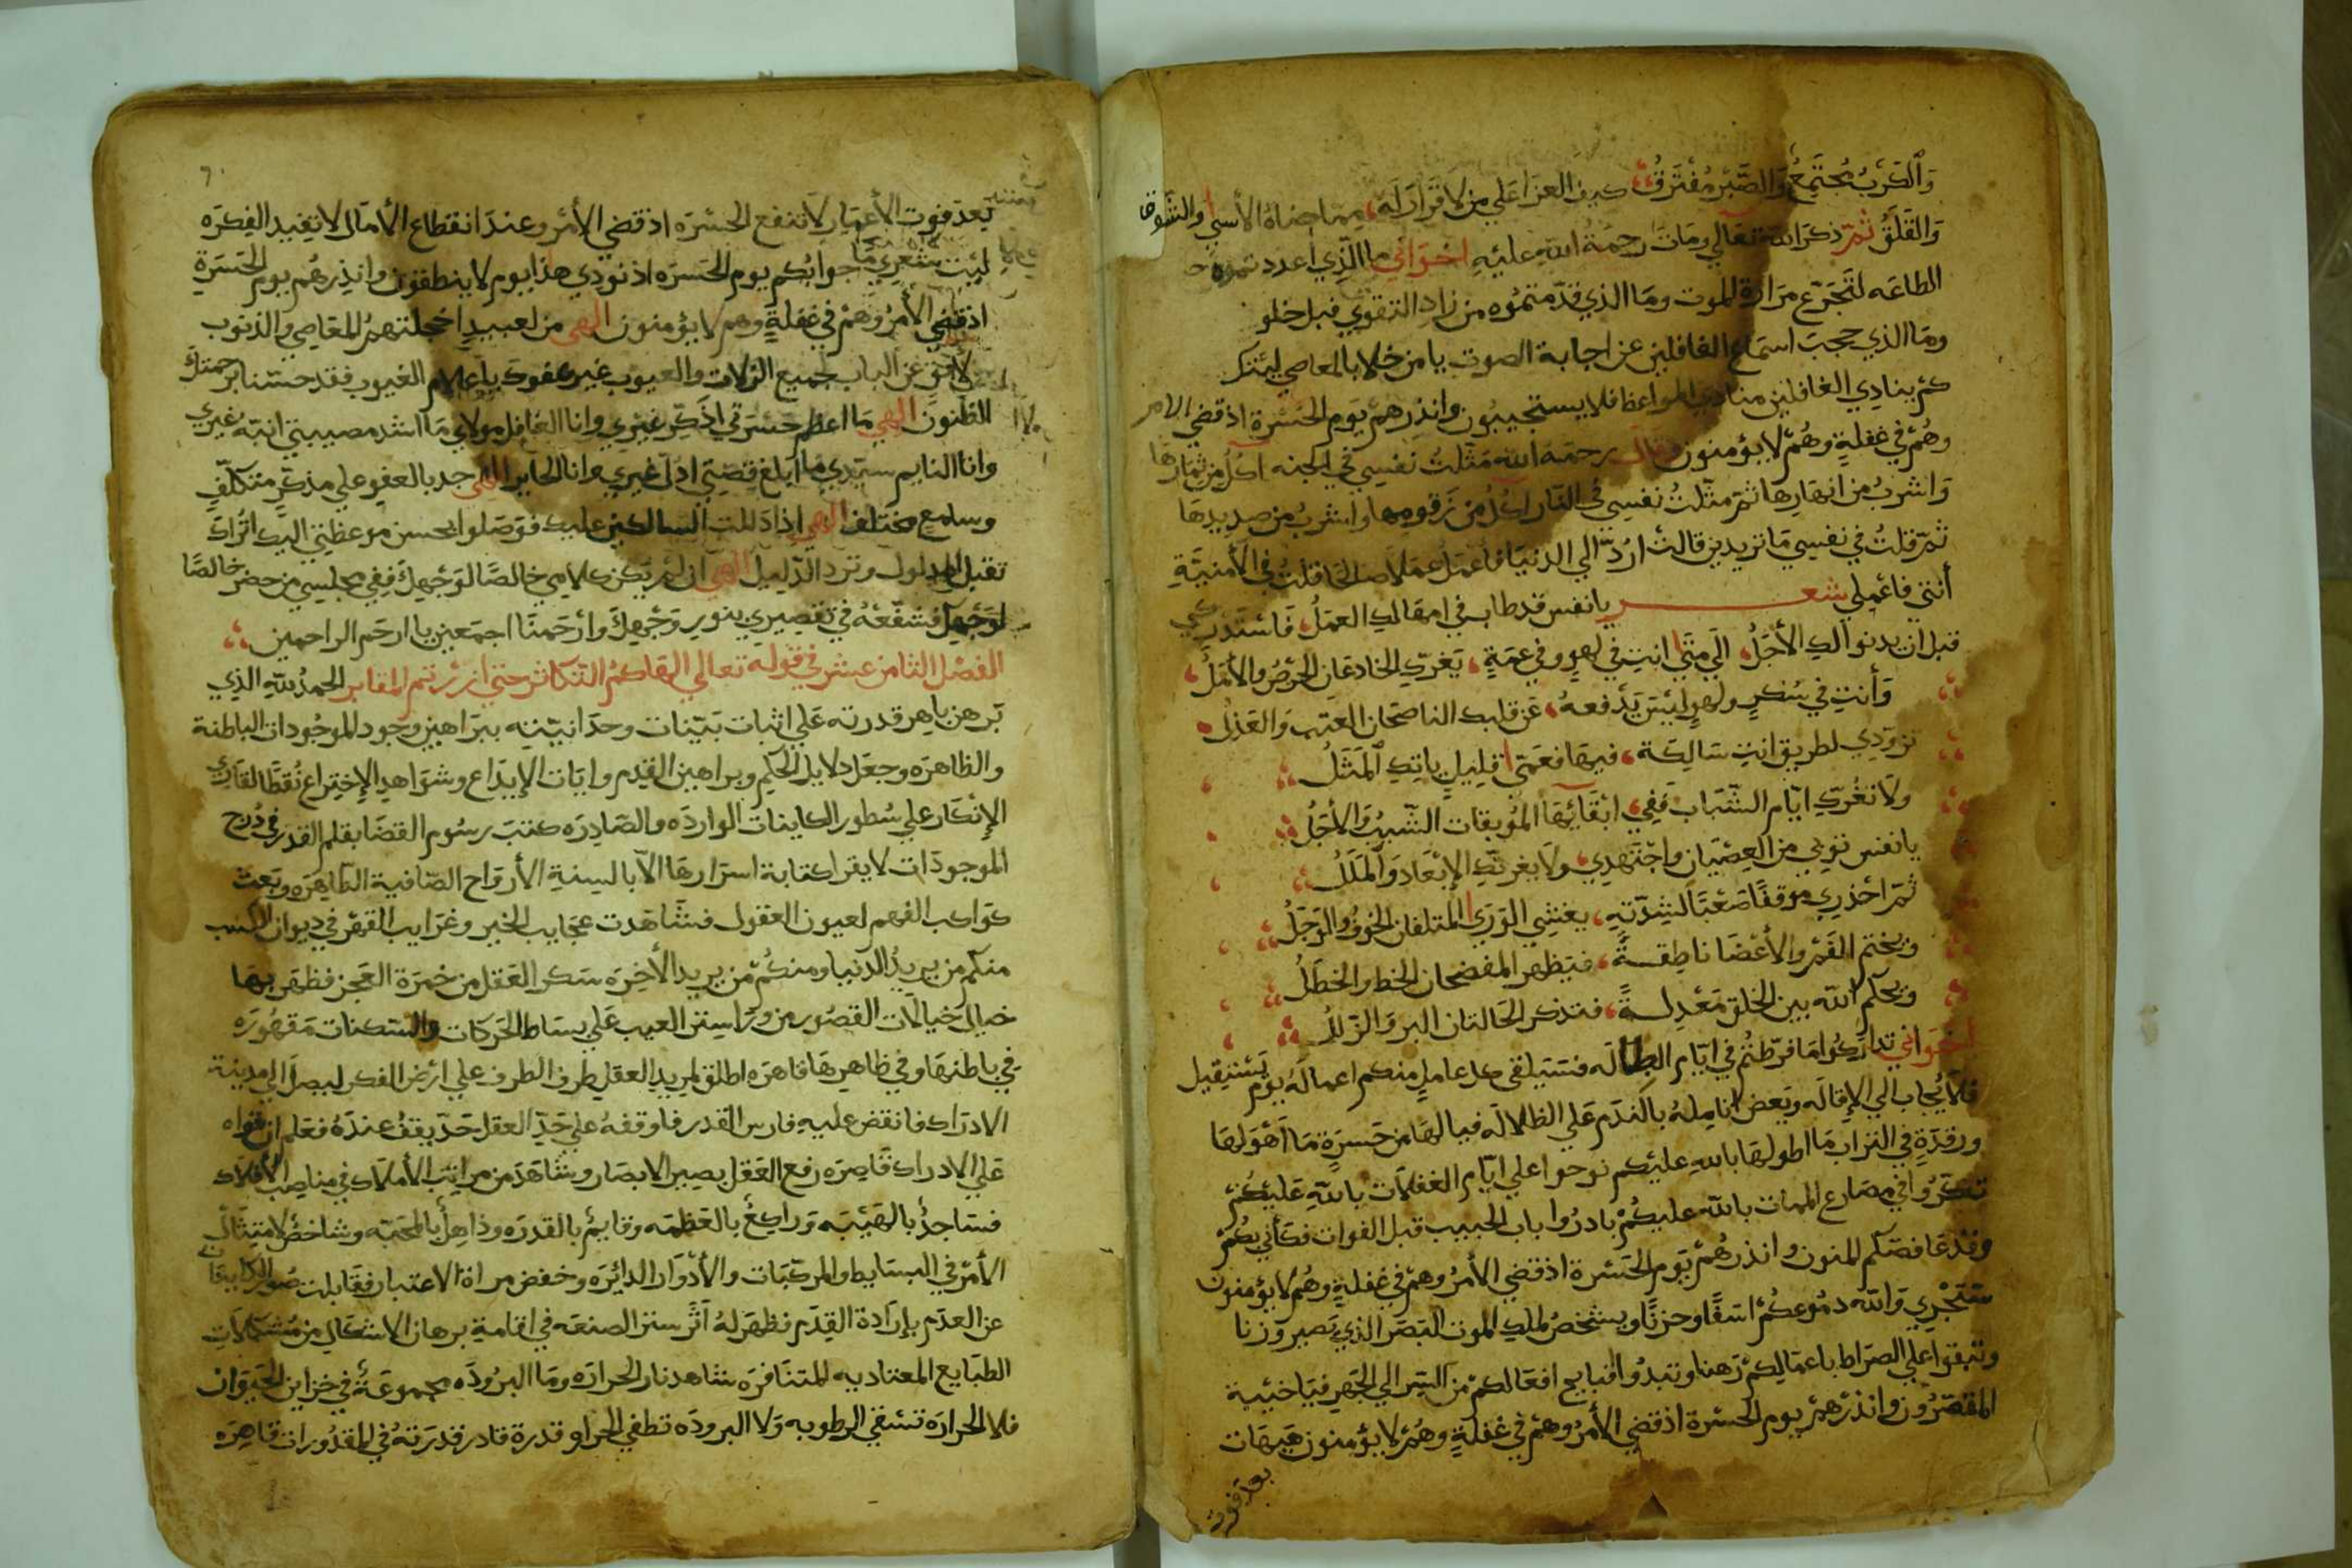 وَالكَرْبُ مُجْتَمِعٌ وَالصَّبْرُ مُفْتَرَقٌ كيف العزا على من لا قَرَارَ لَه مما جناهُ الأسى والشوق
وَالقَلَقُ ثمّ ذكر الله تعالى ومات رحمَةُ الله عليْهِ اخْوَاني ما الَّذِي اعددتموه
الطاعَه لتَجَرّع مَرَارة الموت ومَا الذي قدّمتمُوه من زاد التقوي قبل خلو
ومَا الذي حجبَ اسماع الغافلين عن اجابة الصوت يا من خلا بالمعاصي
كم ينادي الغافلين منادي المواعظ فلا يستجيبون وانذرهم يَوم الحَسْرة اذ قضي الامر
وهُمْ في غفلةٍ وهُمْ لا يؤمنون وقال رحمَه الله مَثّلتُ نفسِي في الجنه اكُلُ من ثمارها
وَاشربُ من انهارِها ثم مثّلتُ نفسِي في النّار اكُلُ من زَقومِها واشربُ من صديدِها
ثمّ قلتُ في نفسِي مَا تريدين قالتْ ارُدّ الي الدنيَا فاعْمَلُ عمَلاً صالحًا قلتُ في الأمنيَّةِ
أنتي فاعْمِلي شعر يا نفس قد طاب في امهَالكِ العمَلُ فاسْتَدْركي
قبل ان يدنوا لكِ الأجَلُ الَي مَتَي انتِ في لهوٍ وفي عمَهٍ يَغرّكِ الخادعَان الحِرْصُ والأمَلُ
وَأنتِ في سُكرٍ ولهوٍ ليْسَ يَدْفعهُ عن قلبك الناصحَان العتب وَالعَذلُ
تزوّدي لطريق انتِ سَالكَة فيهَا فعَمّي قليلٍ يأتكِ المَثلُ
ولا تغُرّكِ ايّام الشّبَاب فَفِي ابْقَائِهَا المُوبقات الشّيبُ وَالأجَلُ
يا نفس توبي من العِصْيَان واجْتَهِدي ولا يغرنّكِ الإبْعَاد وَالمَلَلُ
ثمّ احْذري موقفًا صَعْبًا لشِدّتِهِ يغشي الوَرَي المتلفان الخوْفُ والوَجَلُ
ويختم الفَمْ والأعْضَا ناطِقةً فيَظهر المفضحان الخط والخطَلُ
ويحكم الله بين الخلق مَعْدِلَةً فتذكر الحَالتان البر وَالزّللُ
اخوَاني تداركوا مَا فرّطتُم في ايّام البطاله فسَيَلقى كل عاملٍ منكم اعمالهُ يوْم يَسْتقيل
فلا يُجاب الي الإقالَه ويعَض انامِلهُ بالنَدَم عَلي الظلالَه فيا لهَا من حَسرَةٍ مَا اَهْوَلهَا
ورقدَةٍ في التراب مَا اطولهَا باللهِ عليْكم نوحوا علي ايّام الغفلات باللهِ عَليْكُمْ
تفكّرُوا في مصَارع الممات بالله عليكُمْ بادرُوا باب الحبيب قبل الفوات فكأني بكُمْ
وقدْ غافصَكم المنون وانذرهُمْ يَوم الحَسْرة اذ قضي الأمرُ وهمْ في غفلةٍ وهُم لا يؤمنون
سَتَجْرِي وَاللّه دمُوعكُمْ اسَفًا وحزنًا ويشخصُ لملك الموت البَصَر الذي
وتبقوا علي الصرَاط باعمَالِكم رَهنا وتبدُوا قبايح افعَالكم من السّر الي الجَهر فيَا خيْبة
المقصّرُون وانذرْهمْ يوم الحسْرة اذ قضي الأمرُ وهمْ في غفلةٍ وهُمْ لا يؤمنون هيهَات
بعد فوت
٦٠
بَعدَ فوت الأعمَار لا تنفع الحَسْرَه اذ قضي الأمْر وعندَ انقطاع الأمَال لا تفِيد الفِكرَه
ليْت شعري مَا جوابكم يوم الحَسرَه اذ نودي هذا يوم لا ينطقون وانذِرهُم يوم الحَسَرَةِ
اذ قضي الأمْرُ وهمْ في غفلةٍ وهم لا يؤمنون الهي من لعبيدٍ اخجلتهمُ المعَاصِي والذنوب
عن الباب لجميع الزلات والعيوب غير عفوك يا علام الغيوب فقد حسّنا برحمتكَ
الظنون الهي مَا اعظم حَسْرَتي اذَكّر غيْري وانا الغافل مولاي مَا اشد مصيبتي انبّه غيري
وانا النايم سيّدي مَا ابلغ قِصّتي ادُلّ غيري وانا الحاير الهي جد بالعفو علي مذكّرٍ متكلّفٍ
وسامع مختلف الهي اذا دَللت السالكين عليك فوَصَلوا بحسن موعظتي اليك اتُراكَ
تقبل المدلول وتردّ الدّليل الهي ان لمْ يكن كلامِي خالصًا لوَجْهِكَ ففِي مجلسِي من حضر خالصًا
لوَجْهِكَ فشَفّعْهُ في تقصِيري بنورِ وَجْهِكَ وارْحَمنَا اجمَعين يا ارحَم الراحمين
الفصْل الثامن عشر في قوله تعالي الهَاكمُ التّكاثر حتي زُرْتم المقابر الحمدُ للهِ الذي
بَرهن باهر قدرته عَلي اثبات بَيّنات وحدَانيّتِه ببَراهين وجود الموجُودات الباطنة
والظاهرَه وجعَل دلايل الحِكَم وبراهين القِدَم وايَات الإبدَاع وشوَاهِد الإختِراع نُقطًا لقارئ
الإنكار علي سُطور الكاينات الوارِدَه والصَادِرَه كتبَ رسُوم القضَا بقلم القدر في دُرج
الموجودَات لا يقرا كتابة اسرَارهَا الاّ بالسِنةِ الأرْوَاح الصّافية الطاهِرَه وبَعث
كوَاكب الفهم لعيون العقول فشَاهَدت عجَايب الخبر وغرَايب القهْر في ديوان الكسب
منكم من يريدُ الدّنيا ومنكُمْ مَن يريد الأخِرَه سَكر العَقل من خمرَة العَجز فظهَر بهَا
خيال خيالات القصُور من ورَا سِتر الغيب عَلي بسَاط الحَركات والسّكنات مَقهُورَه
في باطنِهَا وفي ظاهِرِهَا قاهرَه اطلق لمريدِ العقلِ طِرفَ الطرف علي ارْض الفكر ليصلَ الي مدينة
الادرَاك فانقض عليهِ فارس القدر فاوقفهُ علي حَدّ العقل حَدّ يقفُ عندَهُ فعَلم ان قواه
عَلي الادراك قاصِرَه رفع العَقل بصير الابصَار وشاهَدَ من مراتب الأملاك في مناصب الأفلاك
فسَاجدٌ بالهَيْبَه وَراكِعٌ بالعَظمَه وقايمٌ بالقدرَه وذاهِلٌ بالمحَبّه وشاخصٌ لامتثال
الأمْر في البسَايط والمركّبَات والأدْوَار الدائِرَه وخفض مراة الاعتبار فقَابلت صُوَر الكاينات
عن العدَم بإرَادة القِدَم فظهَر لهُ اَثر ستر الصنعَه في اقامةِ برهان الاشكال من مُشكِلاتِ
الطبَايع المعتاديه المتنَافرَه شاهدنار الحرارَه ومَا البرُودَه مجموعَةً في خزاين الحَيَوان
فلا الحرارَه تسْقي الرطوبه وَلا البرودَه تطفي الحرار قدرة قادر قدرَتهُ في المقدُورات قاهِرَه